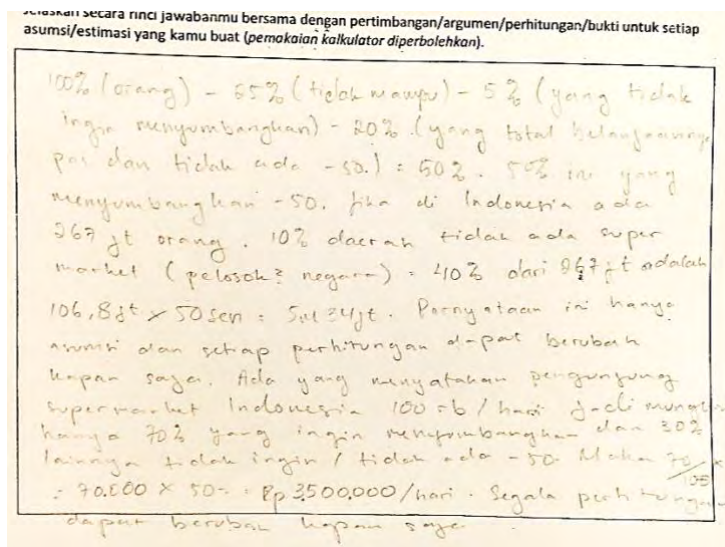 Jelaskan secara rinci jawabanmu bersama dengan pertimbangan/argumen/perhitungan/bukti untuk setiap
asumsi/estimasi yang kamu buat (pemakaian kalkulator diperbolehkan).
100% (orang) - 25% (tidak mampu) - 5% (yang tidak
ingin menyumbangkan) - 20% (yang total belanjaannya
pas dan tidak ada -50.) = 50%. 50% ini yang
menyumbangkan -50. Jika di Indonesia ada
267 jt orang. 10% daerah tidak ada super
market (pelosok² negara) = 40% dari 267 jt adalah
106,8 jt × 50 sen = 5M 34 jt. Pernyataan ini hanya
asumsi dan setiap perhitungan dapat berubah
kapan saja. Ada yang menyatakan pengunjung
supermarket Indonesia 100 rb / hari jadi mungkin
hanya 70% yang ingin menyumbangkan dan 30%
lainnya tidak ingin / tidak ada -50. Maka 70/100 ×
= 70.000 × 50 = Rp 3.500.000/hari. Segala perhitungan
dapat berubah kapan saja